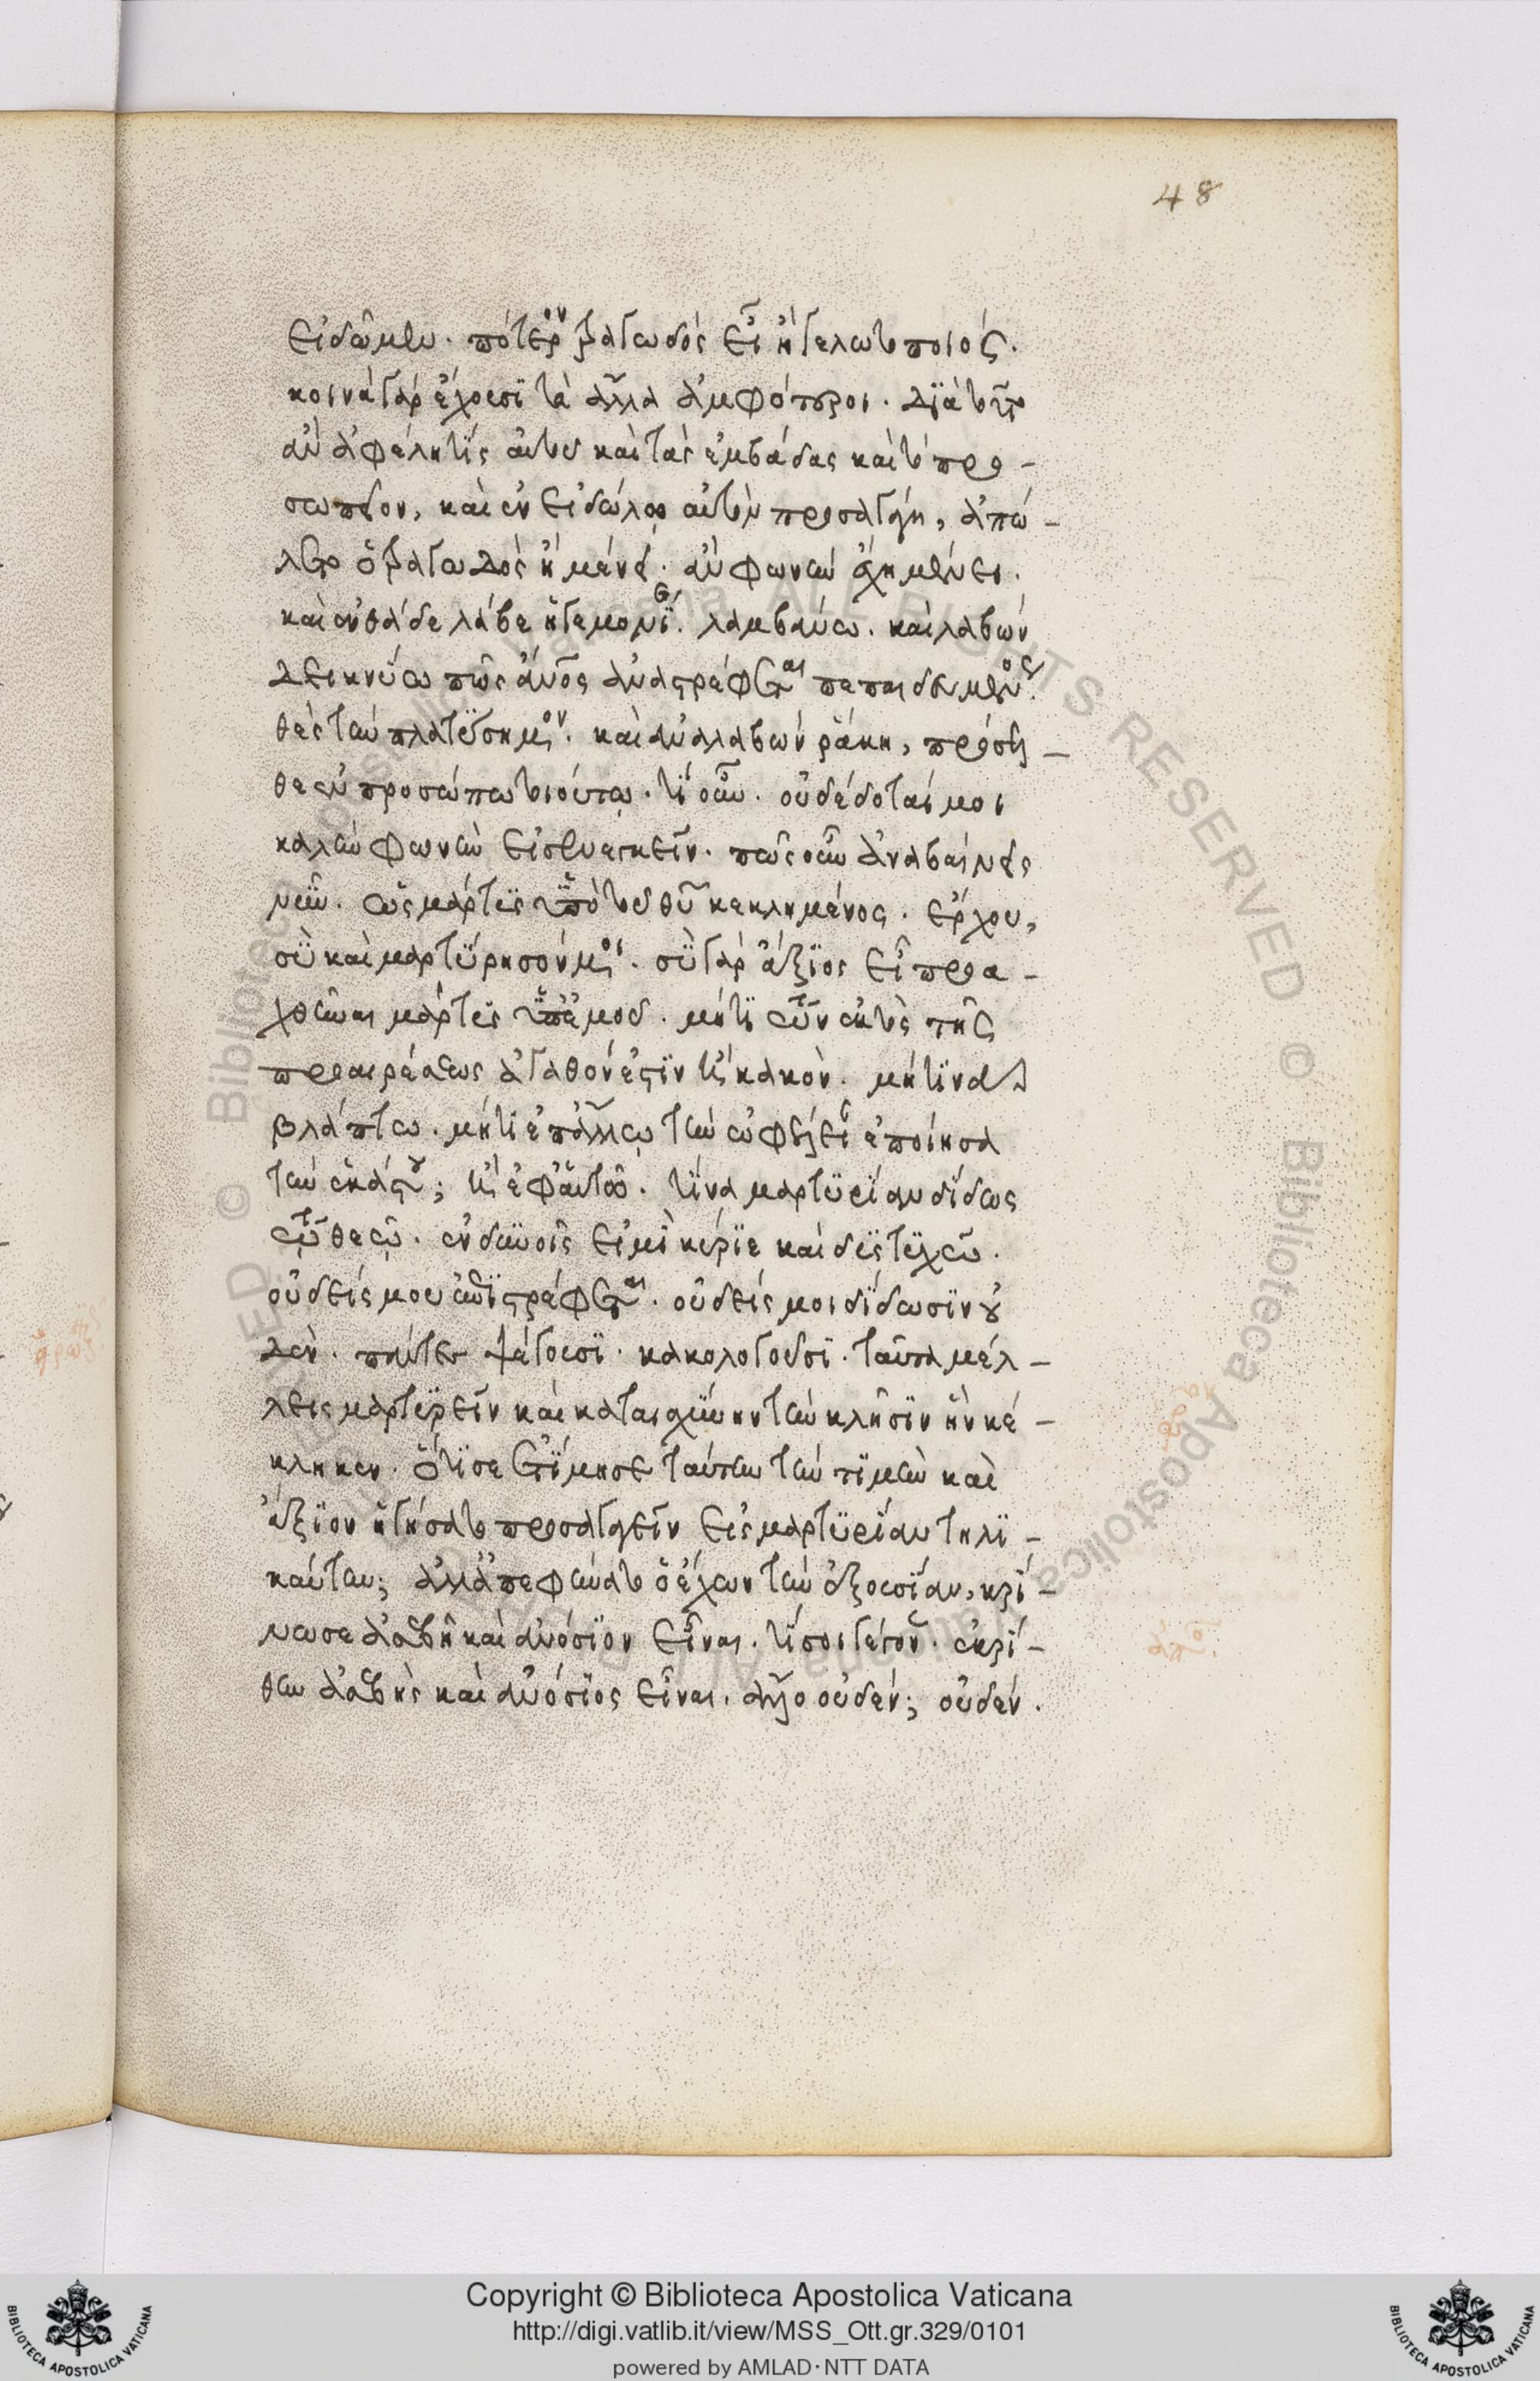 48
εἰδῶμεν. πότερον τραγωδός εἶ ἢ γελωτοποιός.
κοινὰ γὰρ ἔχουσι τὰ ἄλλα ἀμφότεροι. διὰ τοῦτο
ἂν ἀφέλη τίς αὐτοῦ καὶ τὰς ἐμβάδας καὶ τὸ προ-
σωπεῖον, καὶ ἐν εἰδώλω αὐτὸν προσαγάγη, ἀπώ-
λετο ὁ τραγωδός ἢ μένει. ἂν φωνὴν ἔχη μένει.
καὶ ἐνθάδε λάβε ἡγεμονί. λαμβάνω. καὶ λαβών
δεικνύω πῶς ἄνος ἀναστρέφεται πεπαιδευμένος.
θὲς τὴν πλατύσημον. καὶ ἀναλαβών ράκη, πρόσελ-
θε ἐν προσώπω τοιούτω. τί οὖν. οὐ δέδοταί μοι
καλὴν φωνὴν εἰσενεγκεῖν. πῶς οὖν ἀναβαίνεις
νῦν. ὡς μάρτυς ὑπὸ τοῦ θυ κεκλημένος. ἔρχου,
σὺ καὶ μαρτύρησόν μοι. σὺ γὰρ ἄξιος εἶ προα-
χθῆναι μάρτυς ὑπ' ἐμοῦ. μήτι τῶν ἐκτὸς τῆς
προαιρέσεως ἀγαθόν ἐστιν ἢ κακὸν. μήτινα
βλάπτω. μήτι ἐπ' ἄλλω τὴν ὠφέλειαν ἐποίησα
τὴν ἑκάστου; ἢ ἐφ' αὑτῶ. τίνα μαρτυρίαν δίδως
τῶ θεῶ. ἐν δεινοῖς εἰμὶ κύριε καὶ δυστυχῶ.
οὐδείς μου ἐπιστρέφεται. οὐδείς μοι δίδωσιν οὐ
δὲν. πάντες ψέγουσι. κακολογοῦσι. ταῦτα μέλ-
λεις μαρτυρεῖν καὶ καταισχύνην τὴν κλῆσιν ἣν κέ-
κληκεν. ὅτι σε ἐτίμησε ταύτην τὴν τιμὴν καὶ
ἄξιον ἡγήσατο προσαγαγεῖν εἰς μαρτυρίαν τηλι-
καύτην; ἀλλ' ἀπεφήνατο ὁ ἔχων τὴν ἐξουσίαν, κρί-
νω σε ἀσεβῆ καὶ ἀνόσιον εἶναι. τί σοι γέγονε. ἐκρί-
θην ἀσεβὴς καὶ ἀνόσιος εἶναι. ἄλλο οὐδέν; οὐδέν.
Copyright © Biblioteca Apostolica Vaticana
http://digi.vatlib.it/view/MSS_Ott.gr.329/0101
powered by AMLAD·NTT DATA